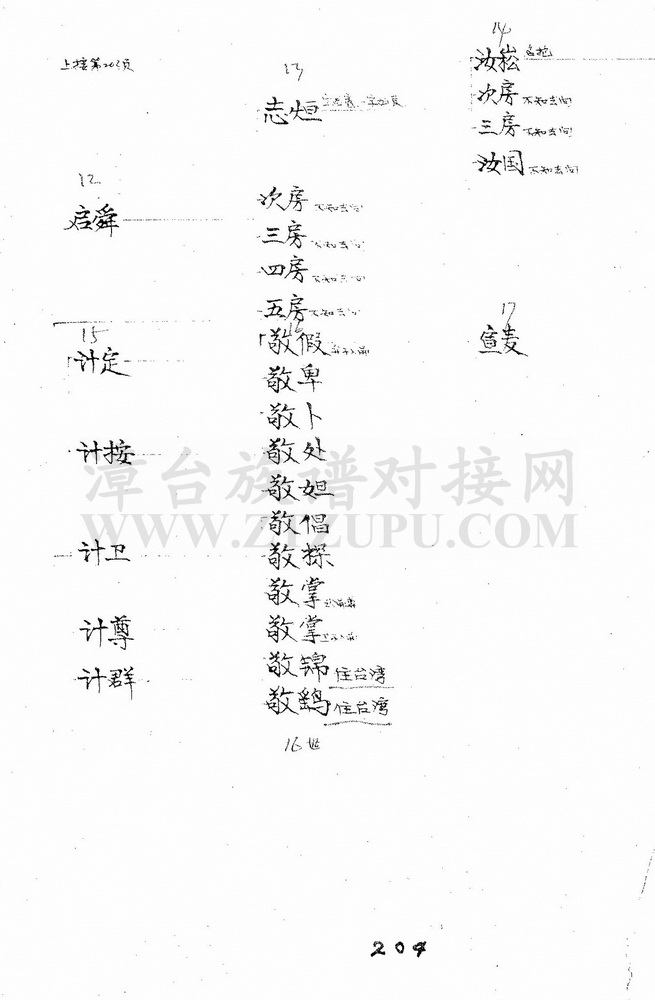 上接第203页
13
14
汝崧
志烜
次房 不知去向
三房 不知去向
汝国 不知去向
12
启舜
次房 不知去向
三房 不知去向
四房 不知去向
五房 不知去向
15
16
17
计定
敬假
宣麦
敬卑
敬卜
计按
敬处
敬妲
敬倡
计卫
敬探
敬掌
计尊
敬掌
计群
敬锦 住台湾
敬鹞 住台湾
16世
204
漳台族谱对接网
WWW.ZTZUPU.COM